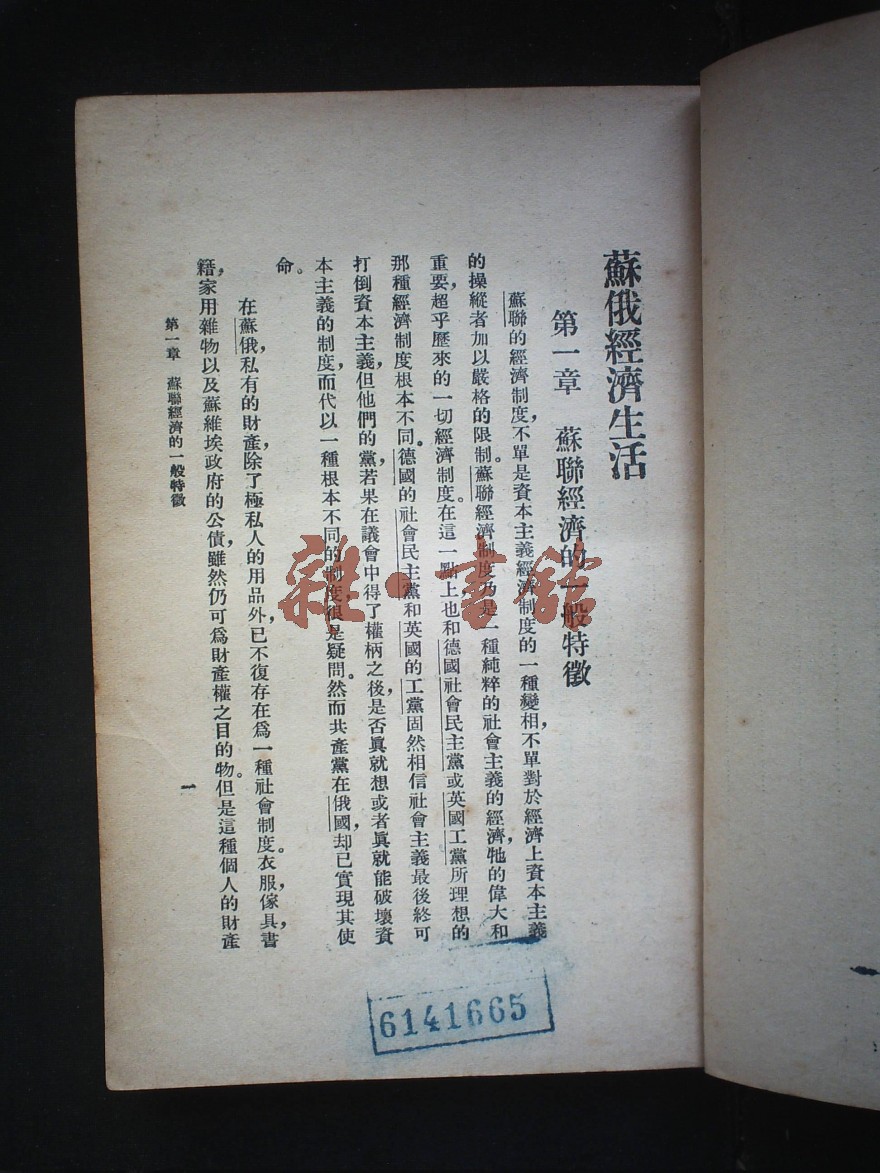 蘇俄經濟生活
第一章　蘇聯經濟的一般特徵
蘇聯的經濟制度，不單是資本主義經濟制度的一種變相，不單對於經濟上資本主義
的操縱者加以嚴格的限制。蘇聯經濟制度乃是一種純粹的社會主義的經濟，牠的偉大和
重要，超乎歷來的一切經濟制度。在這一點上也和德國社會民主黨或英國工黨所理想的
那種經濟制度根本不同。德國的社會民主黨和英國的工黨固然相信社會主義最後終可
打倒資本主義，但他們的黨若果在議會中得了權柄之後，是否眞就想或者眞就能破壞資
本主義的制度，而代以一種根本不同的制度，很是疑問。然而共產黨在俄國，却已實現其使
命。
在蘇俄，私有的財產，除了極私人的用品外，已不復存在爲一種社會制度。衣服，傢具，書
籍，家用雜物以及蘇維埃政府的公債，雖然仍可爲財產權之目的物。但是這種個人的財產
第一章　蘇聯經濟的一般特徵
一
雜·書館
6141665